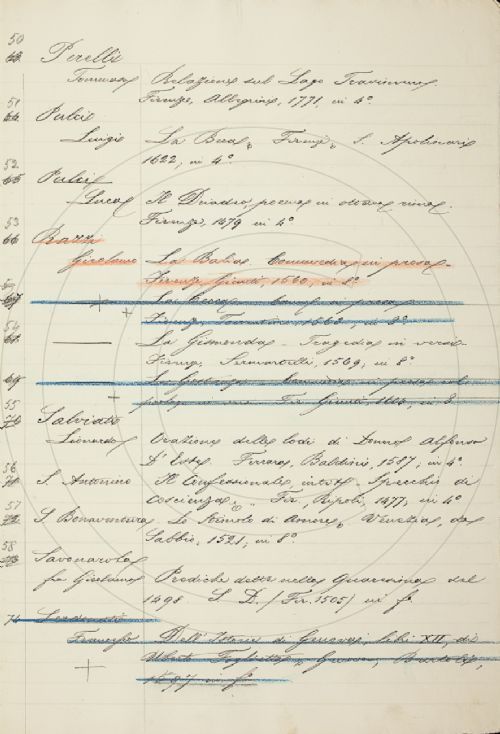 50
63. Perelli
Tommaso Relazione sul Lago Trasimeno.
Firenze, Albizzini, 1771, in 4°
51
64 Pulci
Luigi La Beca, Firenze, S. Apolinari
1622, in 4°
52
65 Pulci
Luca Il Driadeo, poema in ottava rima.
Firenze, 1479 in 4°
53
66 Razzi
Girolamo La Balia Commedia in prosa
Firenze Giunti, 1560, in 8°
67 — La Cecca in prosa
Firenze, 1563, in 8°
54
68. — La Gismonda - Tragedia in versi
Firenze, Sermartelli, 1569, in 8°
69 — La Gostanza Commedia in prosa col
prologo in Fir. Giunti, in 8
55
70 Salviati
Lionardo Orazione delle lodi di Donno Alfonso
D'Este. Ferrara, Baldini, 1587, in 4°
56
71 S. Antonino Il Confessionale, intit. Specchio di
Coscienza. Fir, Ripoli, 1477, in 4°
57
72 S. Bonaventura Lo Stimolo di Amore, Venezia, da
Sabbio, 1521, in 8°
58
73 Savonarola
fra Girolamo Prediche dette nella Quaresima del
1498 S. D. (Fir. 1505) in f°
74
Francesco Dell'Istoria di Genovesi, libri XII, di
Uberto Foglietta, Genova, Bartoli,
1597 in f°